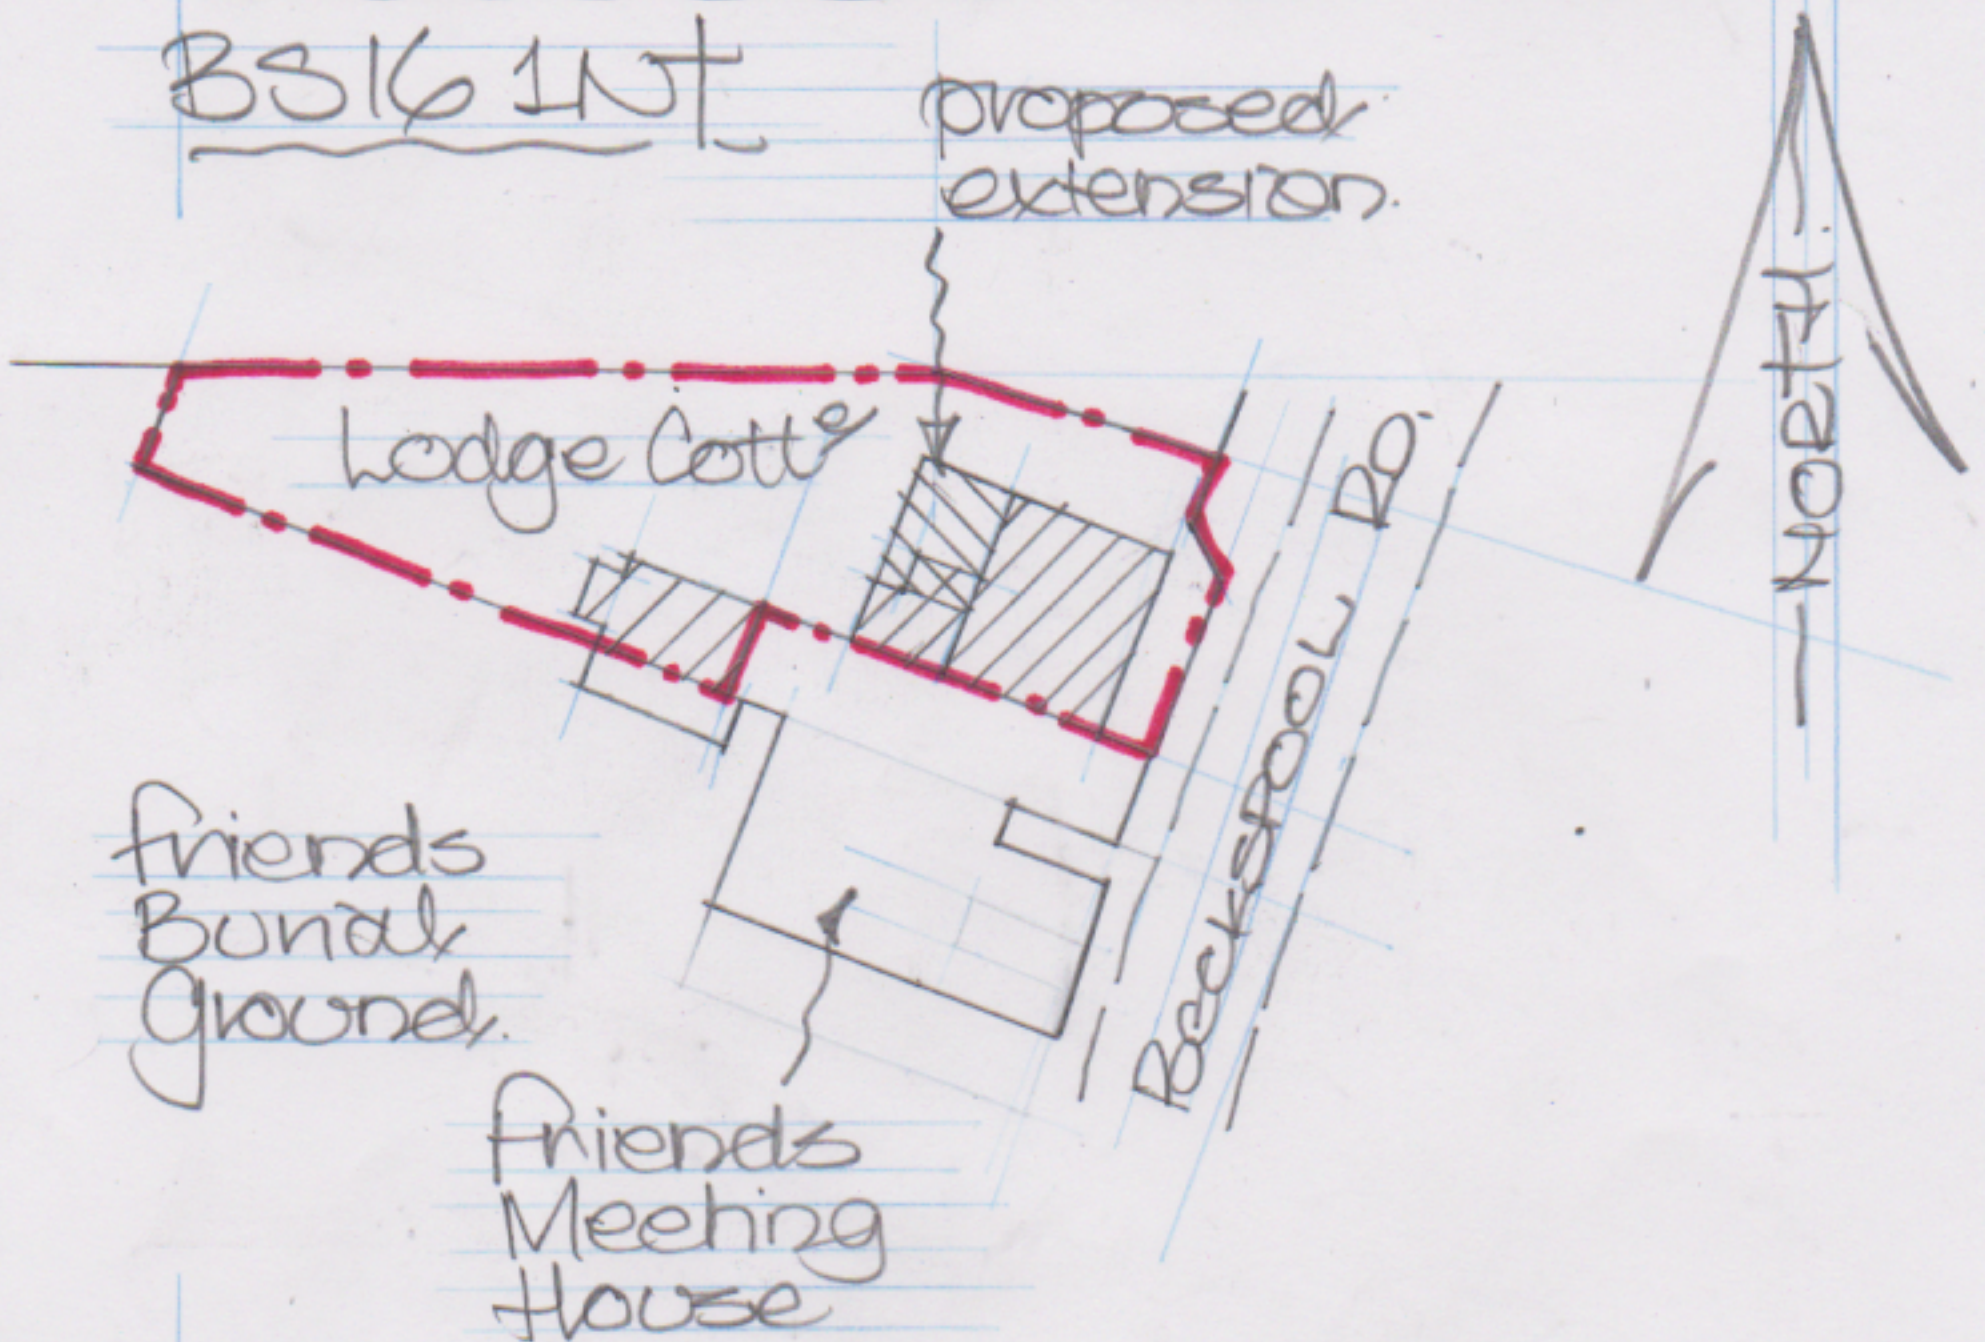 BS16 1NT
proposed
extension.
NORTH.
Lodge Cott^e
BECKSPOOL RD.
friends
Burial
Ground.
friends
Meeting
House